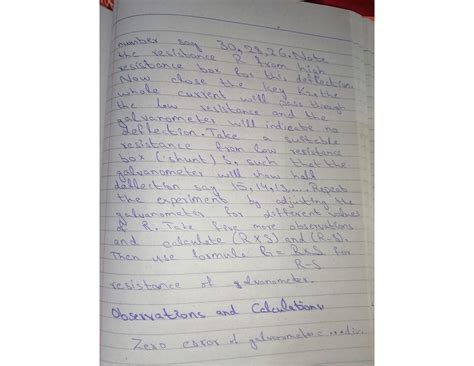 number say 30, 28, 26. Note
the resistance R from high
resistance box for this deflection.
Now close the key K2, the
whole current will pass through
the low resistance and the
galvanometer will indicate no
deflection. Take a suitable
resistance from low resistance
box (shunt) S, such that the
galvanometer will show half
deflection say 15, 14, 13... Repeat
the experiment by adjusting the
galvanometer for different values
of R. Take five more observations
and calculate (RxS) and (R-S).
Then use formula G = RxS for
R-S
resistance of galvanometer.
Observations and Calculations
Zero error of galvanometer =